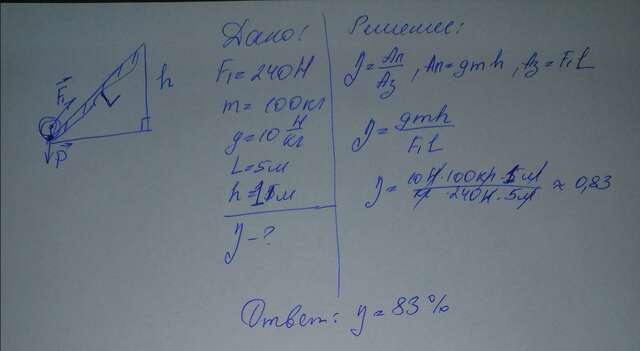 Дано:
F₁ = 240Н
m = 100кг
g = 10 Н/кг
L = 5м
h = 1м
η - ?
F₁
L
h
P
Решение:
η = Aп/Aз , Aп = gmh , Aз = F₁L
η = gmh/F₁L
η = 10Н · 100кг · 1м / кг · 240Н · 5м ≈ 0,83
Ответ: η = 83%